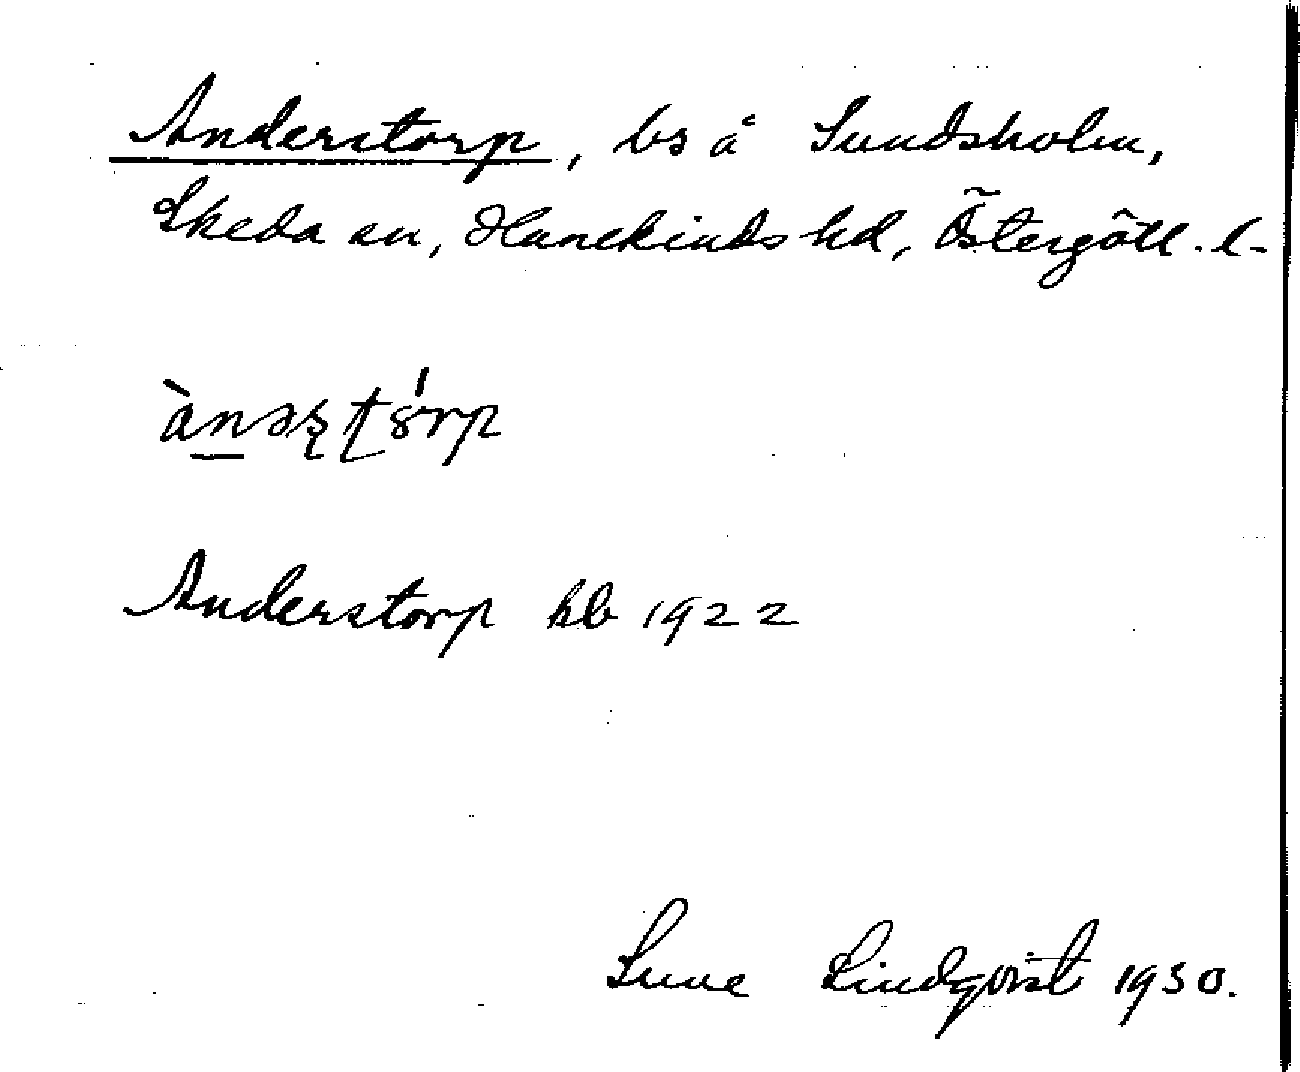 Anderstorp, bs å Sundsholm,
Skeda sn, Hanekinds hd, Östergötl. l.
ànəʂʈȣ́rp
Anderstorp kb 1922
Sune Lindqvist 1930.